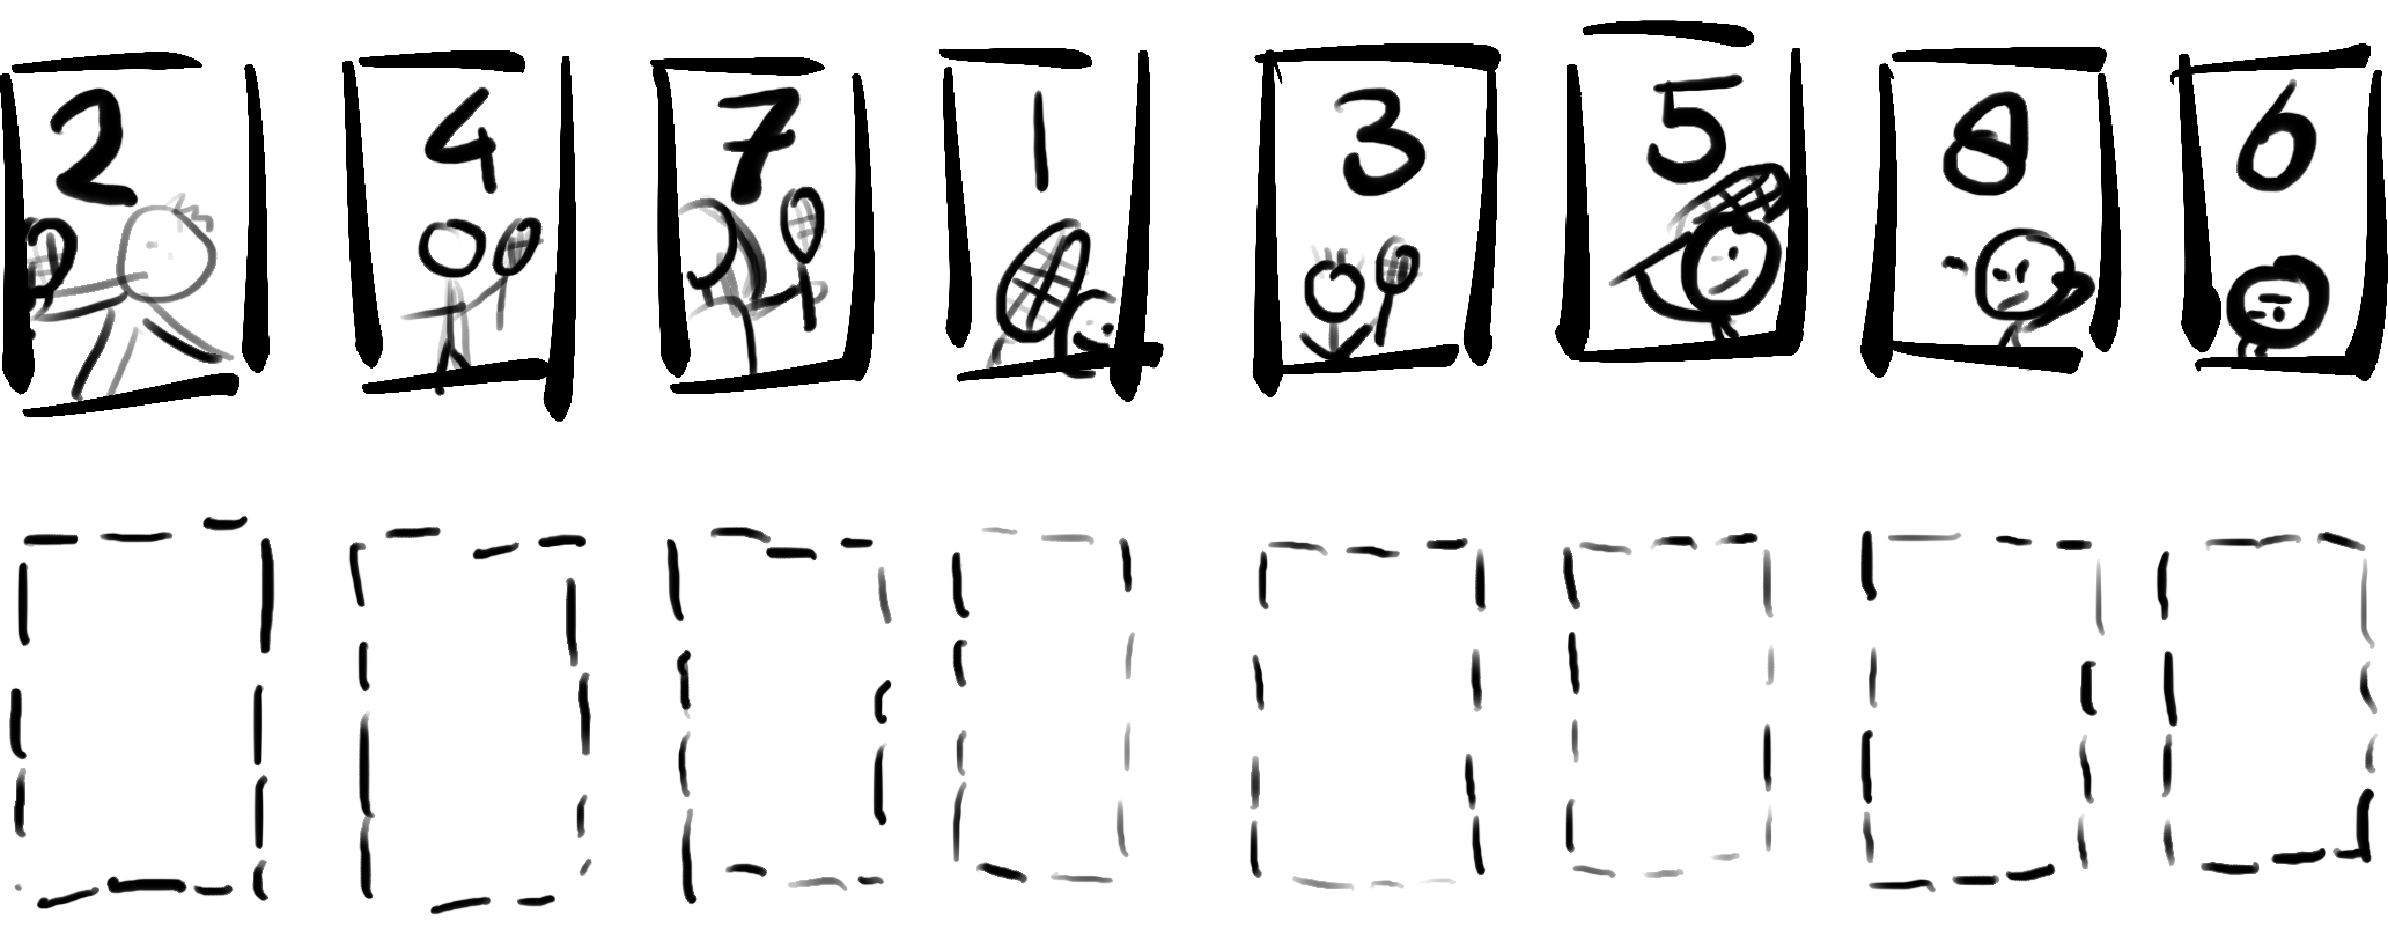 2 4 7 1 3 5 8 6